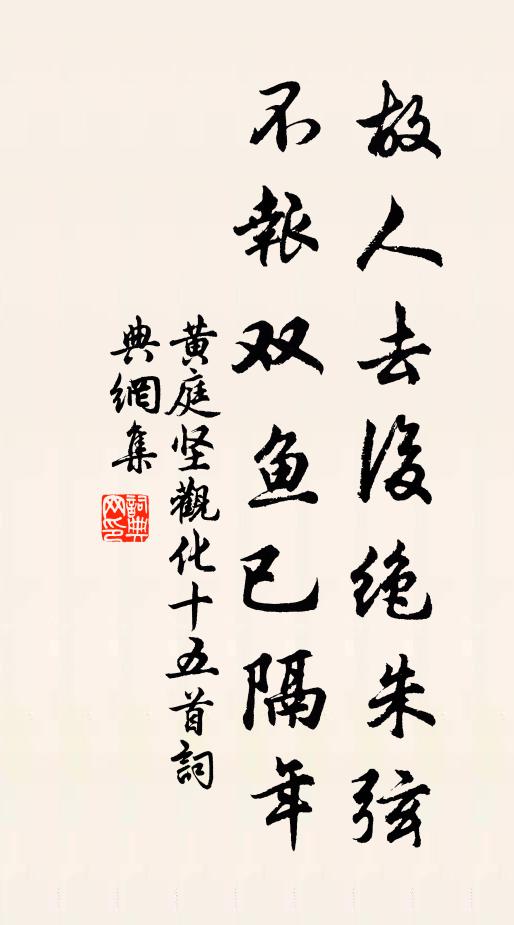 故人去後绝朱弦
不報双鱼已隔年
黄庭坚觀化十五首詞
典網集
詞典
网印